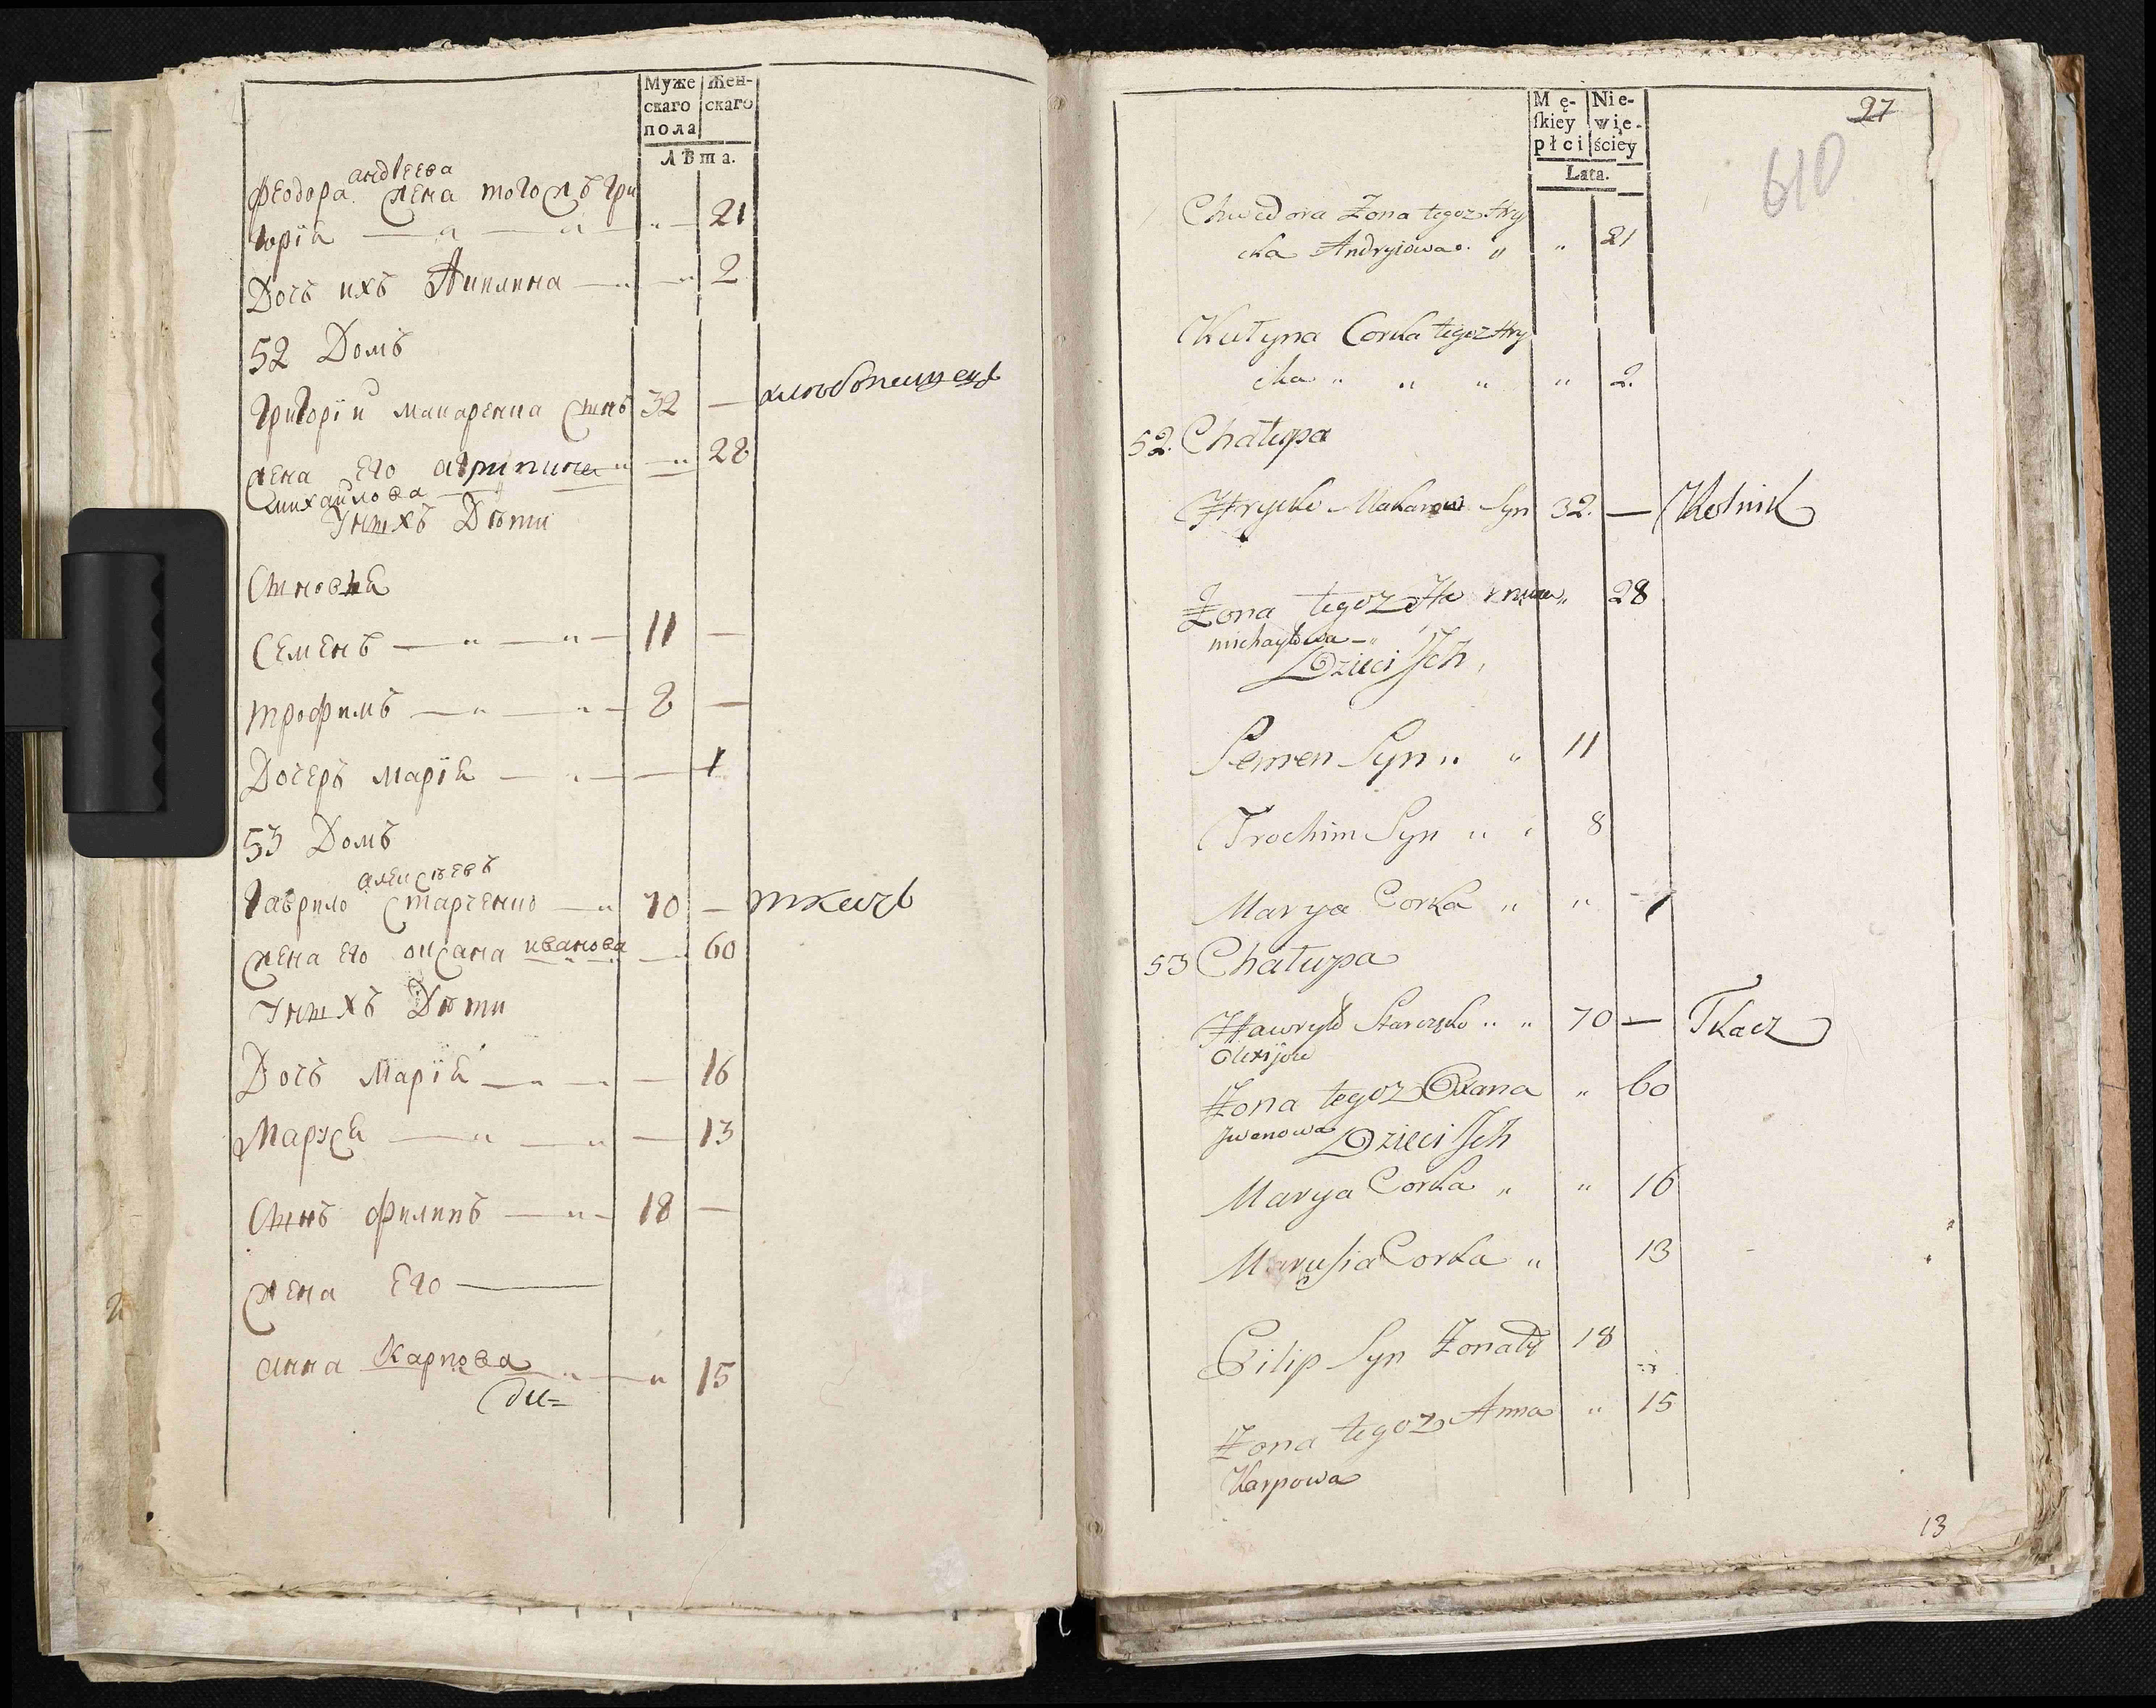 Муже
скаго
пола
Жен-
скаго
Лѣта.
андреева
Феодора жена тогожъ Гри
горiя — " — " — " — 21
Дочь ихъ — " — " 2
52 Домъ
Григорiи макаренка Сынъ 32 — хлѣбопашецъ
жена Его агрипина " — " 28
михайлова
У ныхъ Дѣти
Сыновья
Семенъ — " — " — 11 —
трофимъ — " — " — 8 —
Дочеръ марiя — " — — 1
53 Домъ
алексѣевъ
Гаврило старченко — " 70 — ткачь
жена Его оксана иванова — " 60
У ныхъ Дѣти
Дочь Марiя — " — " — 16
Маруся — " — " — 13
Сынъ филипъ — " — 18 —
жена Его —
анна Карпова " — " 15
Mę-
ſkiey
płci
Nie-
wie-
ściey
Lata.
27
610
Chwedora Zona tegoz Hry
cka Andryiowa " " 21
Corka tegoz Hry
cka " " " " 2.
52. Chałupa
Hrycko Makarow Syn 32. — Rolnik
Zona tegoz " 28
michayłowa — "
Dzieci Jch
Semen Syn " " 11
Trochim Syn " " 8
Marya Corka " " 1
53 Chałupa
Hawryło Starczęko " " 70 — Tkacz
Olexijow
Zona tegoz Oxana " 60
Jwanowa
Dzieci Jch
Marya Corka " " 16
Maruſia Corka " 13
Filip Syn Zonaty 18 "
Zona tegoz Anna " 15
Karpowa
13